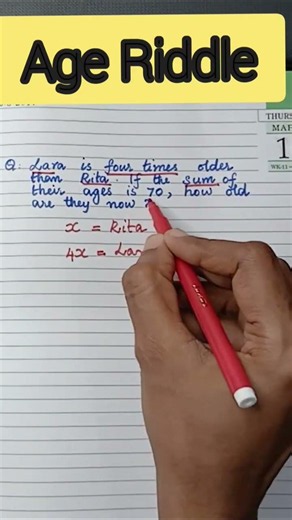 Age Riddle
THURS
MAR
1
Q: Lara is four times older
than Rita. If the sum of
their ages is 70, how old
are they now ?
x = Rita
4x = Lar